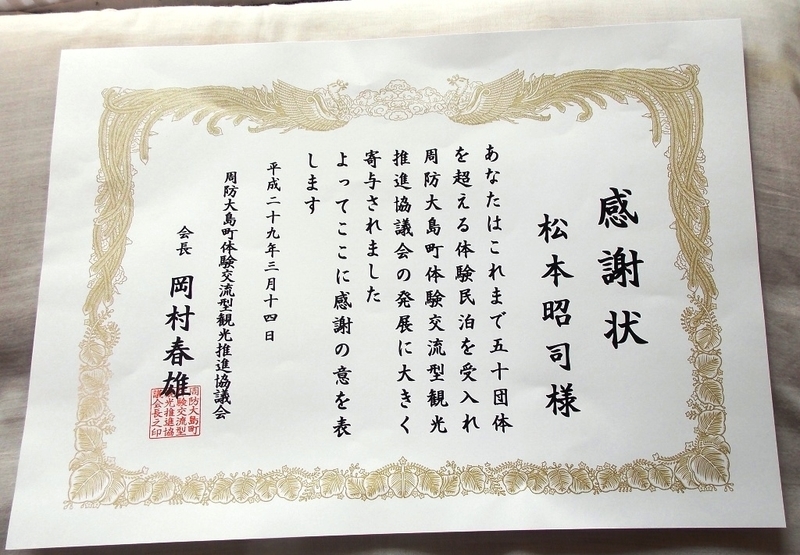 感謝状
松本昭司様
あなたはこれまで五十団体
を超える体験民泊を受入れ
周防大島町体験交流型観光
推進協議会の発展に大きく
寄与されました
よってここに感謝の意を表
します
平成二十九年三月十四日
周防大島町体験交流型観光推進協議会
会長 岡村春雄
周防大島町
体験交流型
観光推進協
議会長之印